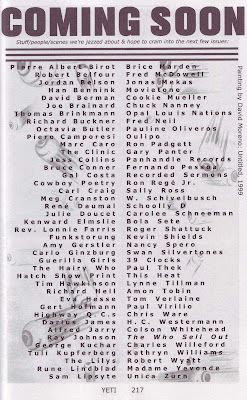 COMING SOON
Stuff/people/scenes we're jazzed about & hope to cram into the next few issues:
Pierre Albert Birot
Robert Belfour
Jordan Belson
Han Bennink
David Berman
Joe Brainard
Thomas Brinkmann
Richard Buckner
Octavia Butler
Piero Camporesi
Marc Caro
The Clinic
Joss Collins
Bruce Conner
Gal Costa
Cowboy Poetry
Carl Craig
Meg Cranston
René Daumal
Julie Doucet
Kenward Elmslie
Rev. Lonnie Farris
Funkstorung
Amy Gerstler
Carlo Ginzburg
Guerilla Girls
The Hairy Who
Hatch Show Print
Tim Hawkinson
Richard Hell
Eva Hesse
Gert Hofmann
Highway Q.C.s
Darius James
Alfred Jarry
Ray Johnson
George Kuchar
Tuli Kupferberg
The Lilys
Rune Lindblad
Sam Lipsyte
Brice Marden
Fred McDowell
Jonas Mekas
Movietone
Cookie Mueller
Chuck Nanney
Opal Louis Nations
Fred Neil
Pauline Oliveros
Oulipo
Ron Padgett
Gary Panter
Panhandle Records
Fernando Pessoa
Recorded Sermons
Ron Regé Jr.
Sally Ross
W. Schivelbusch
Schoolly D
Carolee Schneeman
Bola Sete
Roger Shattuck
Kevin Shields
Nancy Spero
Swan Silvertones
39 Clocks
Paul Thek
This Heat
Lynne Tillman
Amon Tobin
Tom Verlaine
Paul Virilio
Chris Ware
H. C. Westermann
Colson Whitehead
The Who Sell Out
Charles Willeford
Kathryn Williams
Robert Wyatt
Madame Yevonde
Unica Zürn
Painting by David Moreno: Untitled, 1999
YETI 217